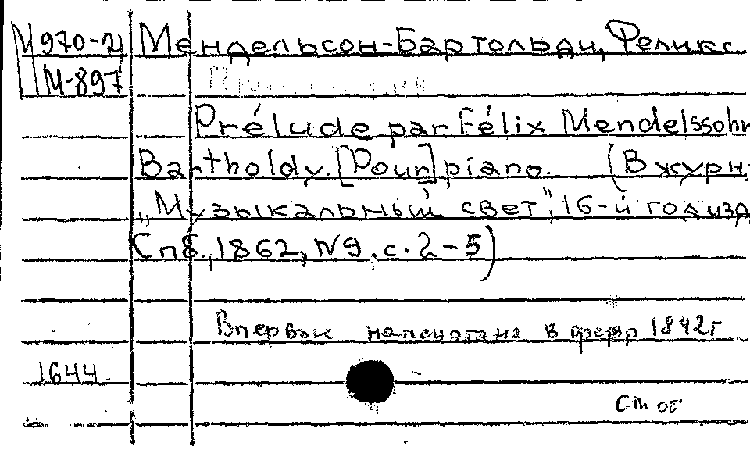 М970-2 Мендельсон-Бартольди, Феликс
М-897
Prélude par Félix Mendelssohn
Bartholdy. [Pour] piano. (В журн.
„Музыкальный свет", 16-й год изд
Спб., 1862, N9, с. 2-5)
Впервые напечатана в февр 1842г
1644
См об